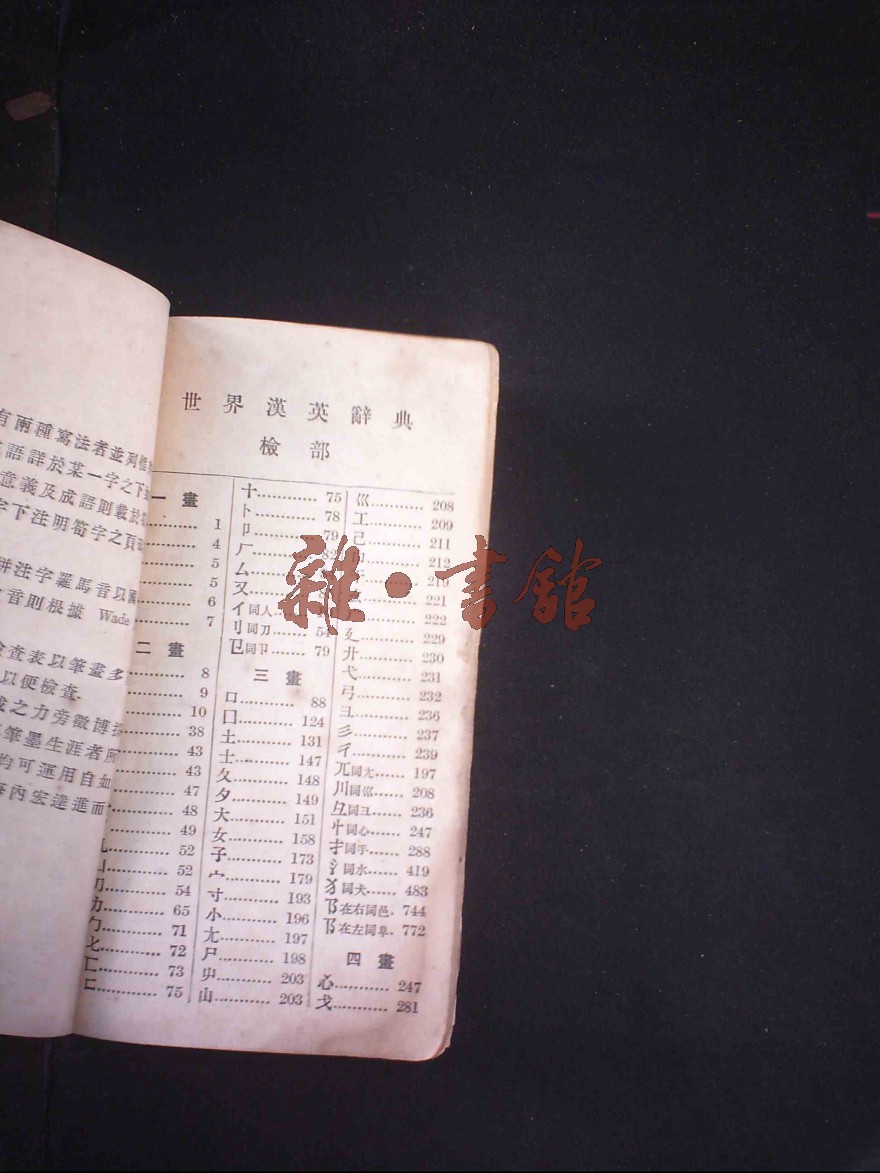 有兩種寫法者並列
語詳於某一字之下
意義及成語則載於
字下注明筍字之頁
注字羅馬音以
音則根據 Wade
查表以筆畫多
以便檢查
之力旁徵博
筆墨生涯者所
均可運用自如
內宏達進而
世界漢英辭典
檢部
一畫
............ 1
............ 4
............ 5
............ 5
............ 6
............ 7
二畫
............ 8
............ 9
............ 10
............ 38
............ 43
............ 43
............ 47
............ 48
............ 49
............ 52
............ 52
............ 54
力............ 65
勹............ 71
匕............ 72
匚............ 73
匸............ 75
十............ 75
卜............ 78
卩............ 79
厂............ 82
厶............
又............
亻同人............
刂同刀............ 54
㔾同卩............ 79
三畫
口............ 88
囗............ 124
土............ 131
士............ 147
夂............ 148
夕............ 149
大............ 151
女............ 158
子............ 173
宀............ 179
寸............ 193
小............ 196
尢............ 197
尸............ 198
屮............ 203
山............ 203
巛............ 208
工............ 209
己............ 211
............ 212
............ 219
............ 221
............ 222
廴............ 229
廾............ 230
弋............ 231
弓............ 232
彐............ 236
彡............ 237
彳............ 239
兀同尢...... 197
川同巛...... 208
彑同彐...... 236
忄同心...... 247
扌同手...... 288
氵同水...... 419
犭同犬...... 483
阝在右同邑. 744
阝在左同阜. 772
四畫
心............ 247
戈............ 281
雜·書館